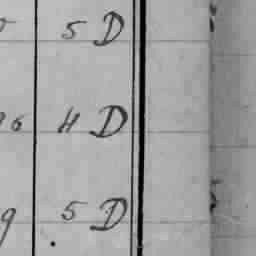 5 D
6 4 D
9 5 D